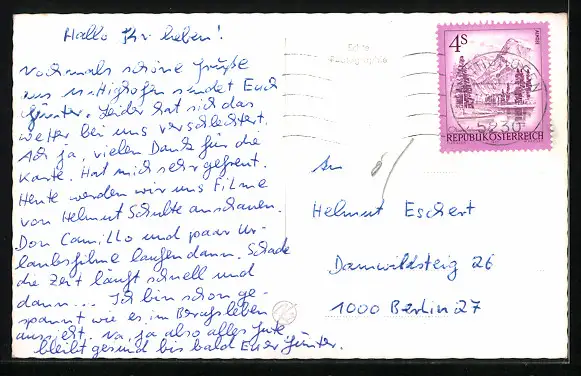 Hallo Ihr lieben!
Nochmals schöne Grüße
aus Mattighofen sendet Euch
Günter. Leider hat sich das
Wetter bei uns verschlechtert.
Ach ja, vielen Dank für die
Karte. Hat mich sehr gefreut.
Heute werden wir uns Filme
von Helmut Schulte anschauen.
Don Camillo und paar Ur-
laubsfilme laufen dann. Schade
die Zeit läuft schnell und
dann... Ich bin schon ge-
spannt wie es im Berufsleben
aussieht. Na, ja also alles Gute
bleibt gesund bis bald Euer Günter.
Echte
Photographie
4S
ALMSEE
5230
REPUBLIK ÖSTERREICH
An
Helmut Eschert
Damwildsteig 26
1000 Berlin 27